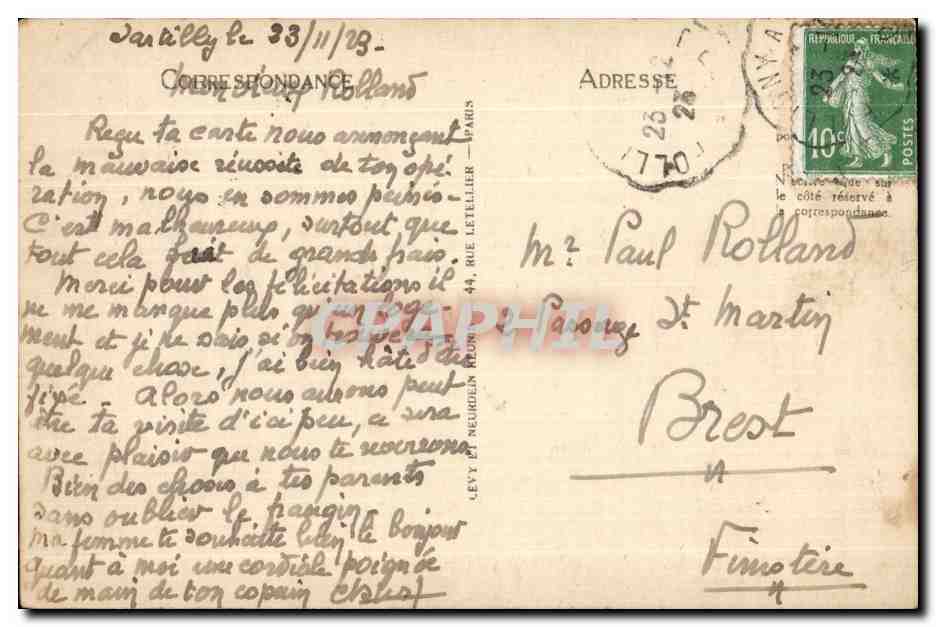 Sartilly le 23/11/23-
CORRESPONDANCE
Mon Rolland
Reçu ta carte nous annonçant
la mauvaise réussite de ton opé-
ration, nous en sommes peinés-
C'est malheureux, surtout que
tout cela fait de grands frais.
Merci pour les félicitations il
ne me manque plus qu'un loge-
ment et je ne sais si on
quelque chose, j'ai bien hâte d'être
fixé - Alors nous aurons peut
être ta visite d'ici peu, ce sera
avec plaisir que nous te reverrons
Bien des choses à tes parents
sans oublier le frangin
ma femme te souhaite bien le bonjour
quant à moi une cordiale poignée
de main de ton copain
LEVY ET NEURDEIN REUNIS 44, RUE LETELLIER — PARIS
ADRESSE
RÉPUBLIQUE FRANÇAISE
10c
POSTES
N'écrire que sur
le côté réservé à
la correspondance.
Mr Paul Rolland
2 Passage St Martin
Brest
Finistère
23
23
CPAPHIL